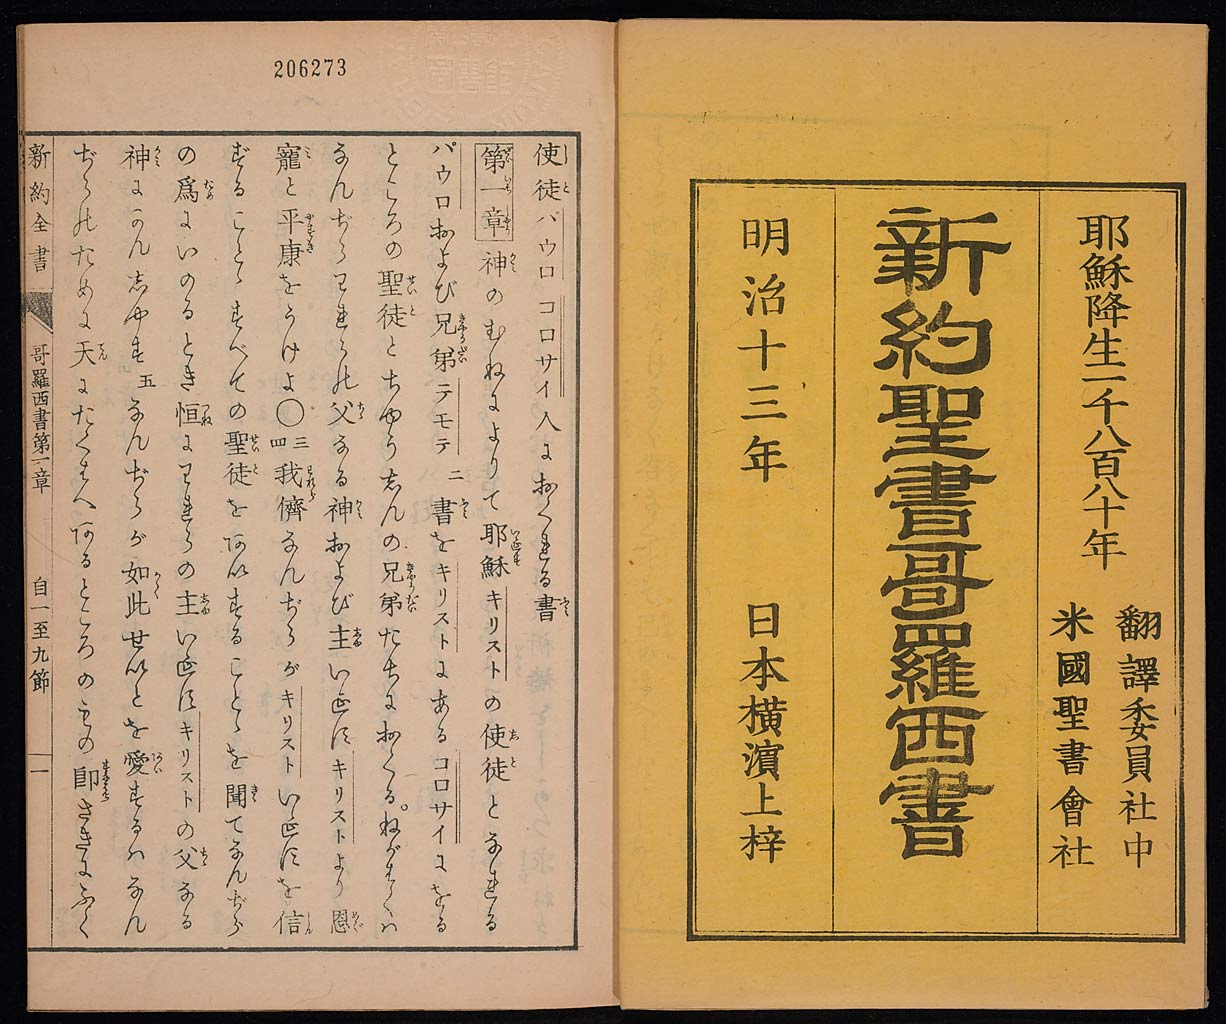 耶穌降生一千八百八十年
翻譯委員社中
米國聖書會社
新約聖書哥羅西書
明治十三年 日本横濱上梓
206273
使徒パウロコロサイ人におくれる書
第一章 神のむねによりて耶穌キリストの使徒となれる
パウロおよび兄弟テモテ二書をキリストにあるコロサイにをる
ところの聖徒とちゆうしんの兄弟たちにおくる。ねがはくハ
なんぢらわれらの父なる神および主いえすキリストより恩
寵と平康をうけよ〇三四我儕なんぢらがキリストいえすを信
ずることゝすべての聖徒をあいすることゝを聞てなんぢら
の爲にいのるとき恒にわれらの主いえすキリストの父なる
神にかんしやす五なんぢらが如此せいとを愛するハなん
ぢらのために天にたくはへあるところのもの即さきにふく
新約全書 哥羅西書第一章 自一至九節 一